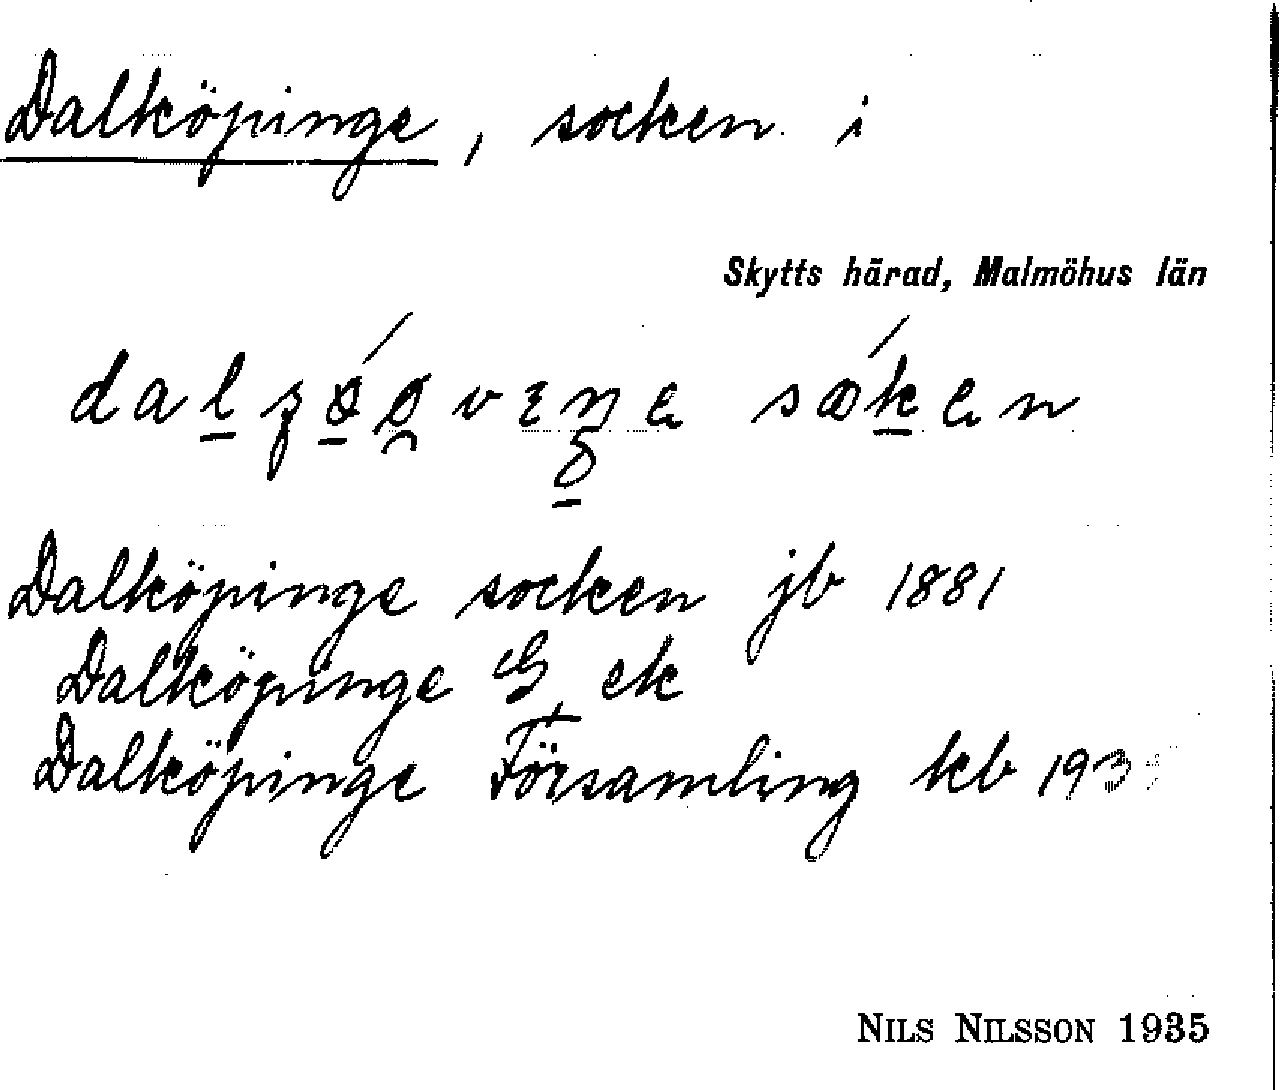 Dalköpinge, socken i
Skytts härad, Malmöhus län
söken
Dalköpinge socken jb 1881
Dalköpinge G ek
Dalköpinge Församling kb
NILS NILSSON 1935